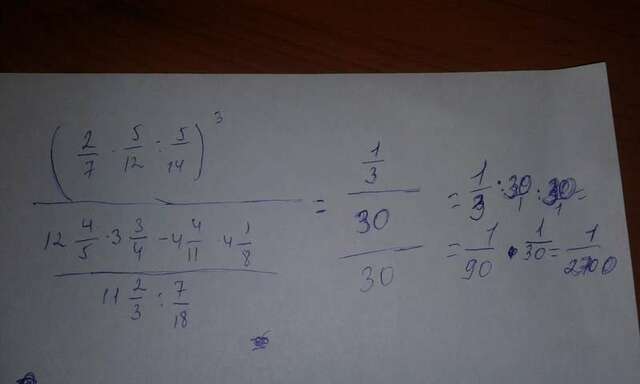 (2/7 · 5/12 : 5/14)³
12 4/5 · 3 3/4 - 4 4/11 · 4 1/8
11 2/3 : 7/18
= 1/3
30
30
= 1/3 : 30/1 : 30/1 =
= 1/90 · 1/30 = 1/2700